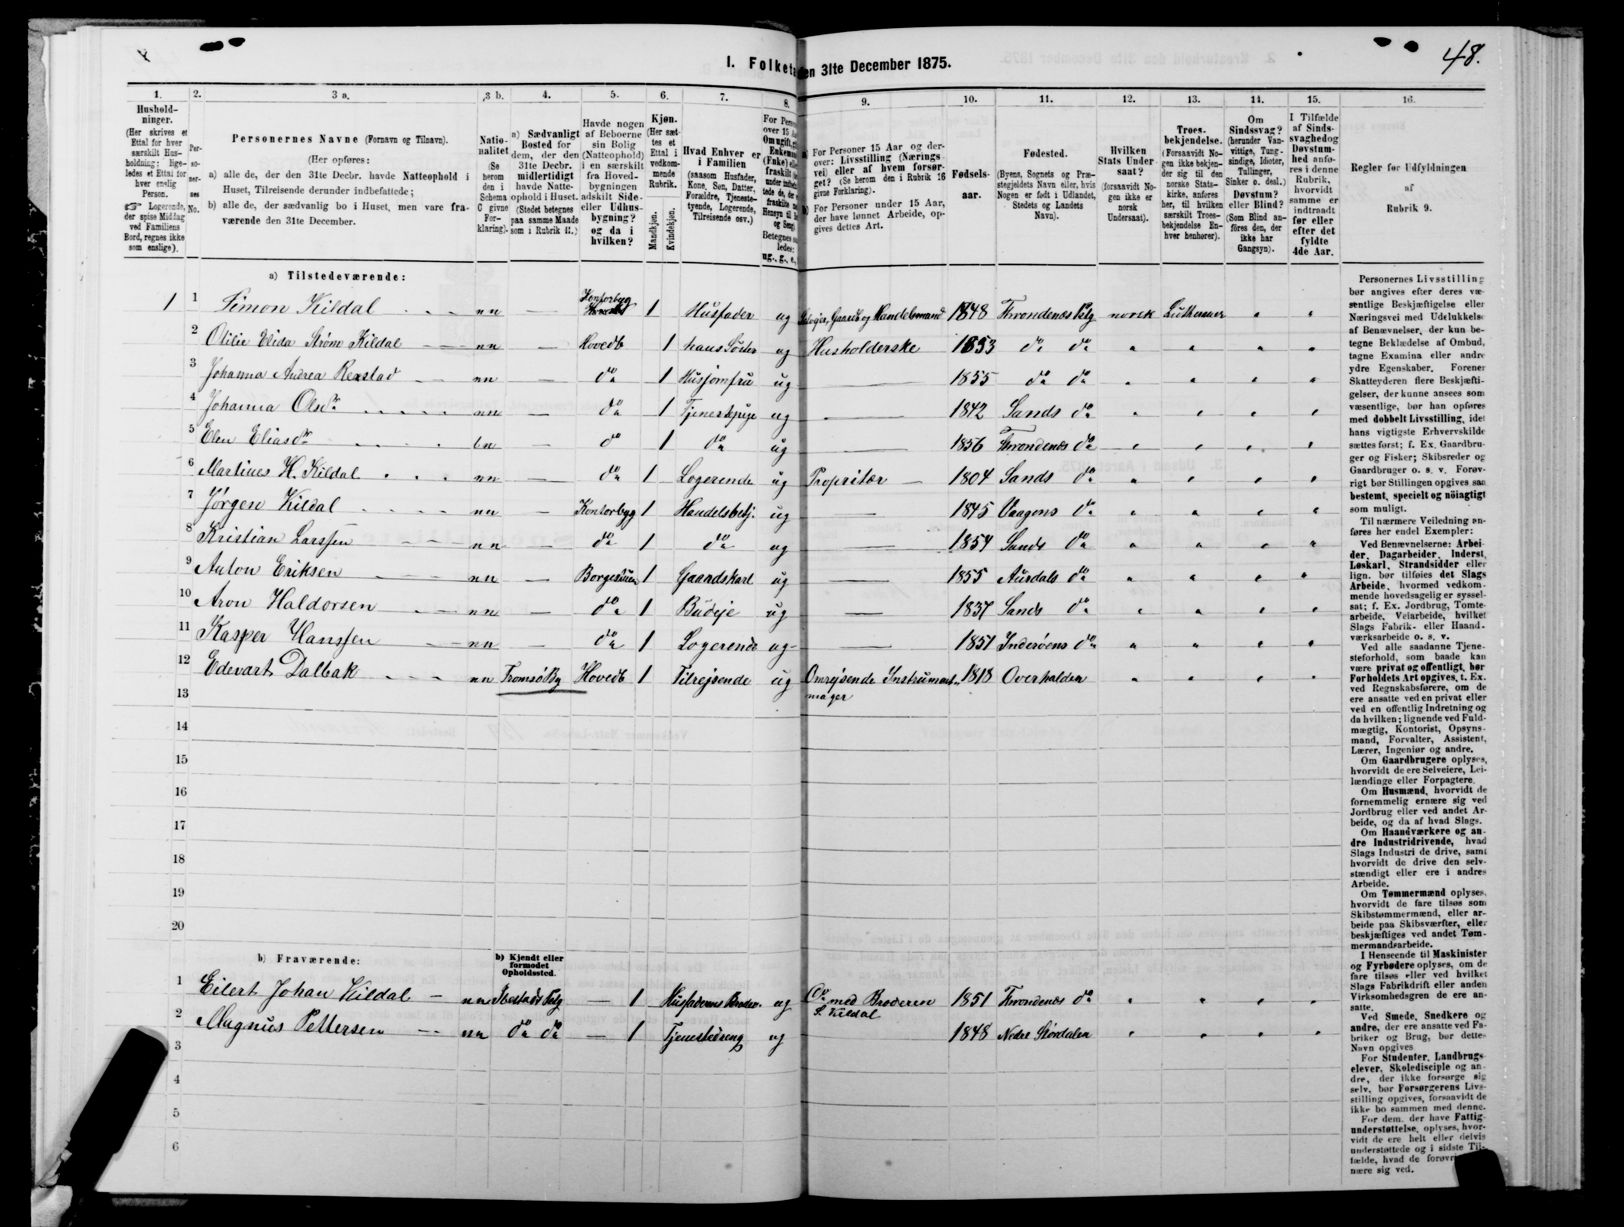 48.
I. Folketæ
en 31te December 1875.
1. 2. 3 a. 3 b. 4. 5. 6. 7. 8. 9. 10. 11. 12. 13. 14. 15. 16.
Hushold-
ninger.
(Her skrives et
Ettal for hver
særskilt Hus-
holdning; lige-
ledes et Ettal for
hver enslig
Person.
☞ Logerende,
der spise Middag
ved Familiens
Bord, regnes ikke
som enslige).
Per-
so-
ner-
nes
No.
Personernes Navne (Fornavn og Tilnavn).
(Her opføres:
a) alle de, der den 31te Decbr. havde Natteophold i
Huset, Tilreisende derunder indbefattede;
b) alle de, der sædvanlig bo i Huset, men vare fra-
værende den 31te December.
Natio-
nalitet
(Se
herom
den i
Schema
C givne
For-
klaring).
a) Sædvanligt
Bosted for
dem, der den
31te Decbr.
midlertidigt
havde Natte-
ophold i Huset.
(Stedet betegnes
paa samme Maade
som i Rubrik 11.)
Havde nogen
af Beboerne
sin Bolig
(Natteophold)
i en særskilt
fra Hoved-
bygningen
adskilt Side-
eller Udhus-
bygning?
og da i
hvilken?
Kjøn.
(Her sæt-
tes et
Ettal i
vedkom-
mende
Rubrik.
Mandkjøn.
Kvindekjøn.
Hvad Enhver er
i Familien
(saasom Husfader,
Kone, Søn, Datter,
Forældre, Tjeneste-
tyende, Logerende,
Tilreisende osv.)
For Perso
over 15 A
Om ugift, g
Enkeman
(Enke) elle
fraskilt
Betegnes sa
ledes:
ug., g., e.,
a) For Personer 15 Aar og der-
over: Livsstilling (Nærings-
vei) eller af hvem forsør-
get? (Se herom den i Rubrik 16
givne Forklaring).
b) For Personer under 15 Aar,
der have lønnet Arbeide, op-
gives dettes Art.
Fødsels-
aar.
Fødested.
(Byens, Sognets og Præ-
stegjeldets Navn eller, hvis
Nogen er født i Udlandet,
Stedets og Landets
Navn).
Hvilken
Stats Under-
saat?
(forsaavidt No-
gen ikke er
norsk
Undersaat).
Troes-
bekjendelse.
(Forsaavidt No-
gen ikke bekjen-
der sig til den
norske Stats-
kirke, anføres
her, til hvilken
særskilt Troes-
bekjendelse En-
hver henhører).
Om
Sindssvag?
(herunder Van-
vittige, Tung-
sindige, Idioter,
Tullinger,
Sinker o. desl.)
Døvstum?
eller Blind?
(Som Blind an-
føres den, der
ikke har
Gangsyn).
I Tilfælde
af Sinds-
svaghed og
Døvstum-
hed anfø-
res i denne
Rubrik,
hvorvidt
samme er
indtraadt
før eller
efter det
fyldte
4de Aar.
Regler før Udfyldningen
af
Rubrik 9.
a) Tilstedeværende:
1 1 Simon Kildal nn — Kontorbyg 1 Husfader ug Gaardb og Handelsmand 1848 Throndenæs Pslg norsk Lutheraner
2 Otilie Elida Strøm Kildal nn — Hovedb 1 hans Søster ug Husholderske 1853 do do
3 Johanna Andrea Rexstad nn — do 1 Husjomfru ug — 1855 do do
4 Johanna Olsdr nn — do 1 Tjenestepige ug — 1842 Sands do
5 Elen Eliasdr bn — do 1 do ug — 1856 Throndenæs do
6 Martines H. Kildal nn — do 1 Logerende ug Propritær — 1804 Sands do
7 Jørgen Kildal nn — Kontorbyg 1 Handelsbetj. ug — 1845 Vaagens do
8 Kristian Larssen nn — do 1 do ug — 1854 Sands do
9 Anton Eriksen nn — Borgestuen 1 Gaardskarl ug — 1855 Aurdals do
10 Aron Haldorsen nn — do 1 Budeje ug — 1837 Sands do
11 Kasper Hanssen nn — do 1 Logerende ug — 1851 Inderøens do
12 Edevart Dalbak nn Tromsø By Hovedb 1 Tilrejsende ug Omrejsende Instrument- 1818 Overhalden
mager
13
14
15
16
17
18
19
20
b) Fraværende:
b) Kjendt eller
formodet
Opholdssted.
1 Eilert Johan Kildal — nn Ibestads Pslg — 1 Husfaderens Broder ug med Broderen 1851 Throndenæs do
S. Kildal
2 Magnus Pettersen nn do do — 1 Tjenestedreng ug 1848 Nedre Størdalen
3
4
5
6
Personernes Livsstilling
bør angives efter deres væ-
sentlige Beskjæftigelse eller
Næringsvei med Udelukkelse
af Benævnelser, der kun be-
tegne Beklædelse af Ombud,
tagne Examina eller andre
ydre Egenskaber. Forener
Skatteyderen flere Beskjæfti-
gelser, der kunne ansees som
væsentlige, bør han opføres
med dobbelt Livsstilling, idet
hans vigtigste Erhvervskilde
sættes først; f. Ex. Gaardbru-
ger og Fisker; Skibsreder og
Gaardbruger o. s. v. Forøv-
rigt bør Stillingen opgives saa
bestemt, specielt og nöiagtigt
som muligt.
Til nærmere Veiledning an-
føres her endel Exempler:
Ved Benævnelserne: Arbei-
der, Dagarbeider, Inderst,
Løskarl, Strandsidder eller
lign. bør tilføies det Slags
Arbeide, hvormed vedkom-
mende hovedsagelig er syssel-
sat; f. Ex. Jordbrug, Tomte-
arbeide, Veiarbeide, hvilket
Slags Fabrik- eller Haand-
værksarbeide o. s. v.
Ved alle saadanne Tjene-
steforhold, som baade kan
være privat og offentligt, bør
Forholdets Art opgives, t. Ex.
ved Regnskabsførere, om de
ere ansatte ved en privat eller
ved en offentlig Indretning og
da hvilken; lignende ved Fuld-
mægtig, Kontorist, Opsyns-
mand, Forvalter, Assistent,
Lærer, Ingeniør og andre.
Om Gaardbrugere oplyses,
hvorvidt de ere Selveiere, Lei-
lændinge eller Forpagtere.
Om Husmænd, hvorvidt de
fornemmelig ernære sig ved
Jordbrug eller ved andet Ar-
beide, og da af hvad Slags.
Om Haandværkere og an-
dre Industridrivende, hvad
Slags Industri de drive, samt
hvorvidt de drive den selv-
stændigt eller ere i andres
Arbeide.
Om Tømmermænd oplyses,
hvorvidt de fare tilsøs som
Skibstømmermænd, eller ar-
beide paa Skibsværfter, eller
beskjæftiges ved andet Tøm-
mermandsarbeide.
I Henseende til Maskinister
og Fyrbødere oplyses, om de
fare tilsøs eller ved hvilket
Slags Fabrikdrift eller anden
Virksomhedsgren de ere an-
satte.
Ved Smede, Snedkere og
andre, der ere ansatte ved Fa-
briker og Brug, bør dettes
Navn opgives
For Studenter, Landbrugs-
elever, Skoledisciple og an-
dre, der ikke forsørge sig
selv, bør Forsørgerens Livs-
stilling opgives, forsaavidt de
ikke bo sammen med denne.
For dem, der have Fattig-
understøttelse, oplyses, hvor-
vidt de ere helt eller delvis
understøttede og i sidste Til-
fælde, hvad de forøvr
nære sig ved.